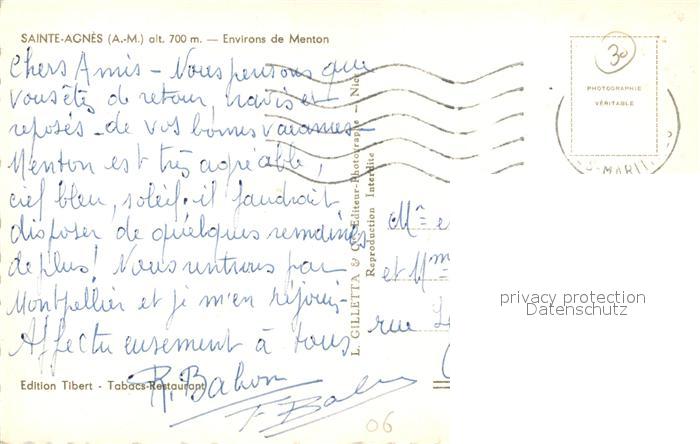 SAINTE-AGNÈS (A.-M.) alt. 700 m. — Environs de Menton
Chers Amis - Nous pensons que
vous êtes de retour, ravis et
reposés - de vos bonnes vacances -
Menton est très agréable,
ciel bleu, soleil. il faudrait
disposer de quelques semaines
de plus! Nous rentrons par
Montpellier et je m'en réjouis -
Affectueusement à tous
R. Bahon
F. Bahon
Edition Tibert - Tabacs-Restaurant
L. GILLETTA & Cie Editeur-Photographe - Nice
Reproduction Interdite
30
PHOTOGRAPHIE
VÉRITABLE
MARIT
Mr e
et Mme
rue
privacy protection
Datenschutz
06